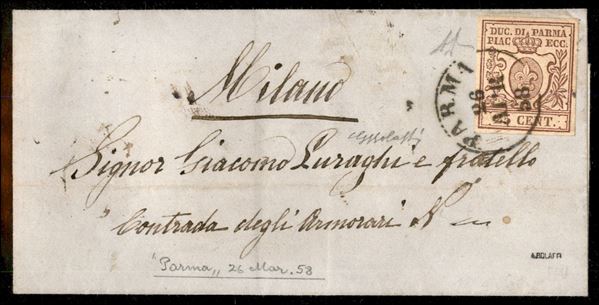 DUC. DI PARMA
PIAC. ECC.
CENT.
PARMA
26
58
Milano
Signor Giacomo Luraghi e fratello
Contrada degli Armorari N
"Parma„ 26 Mar. 58
A.BOLAFFI